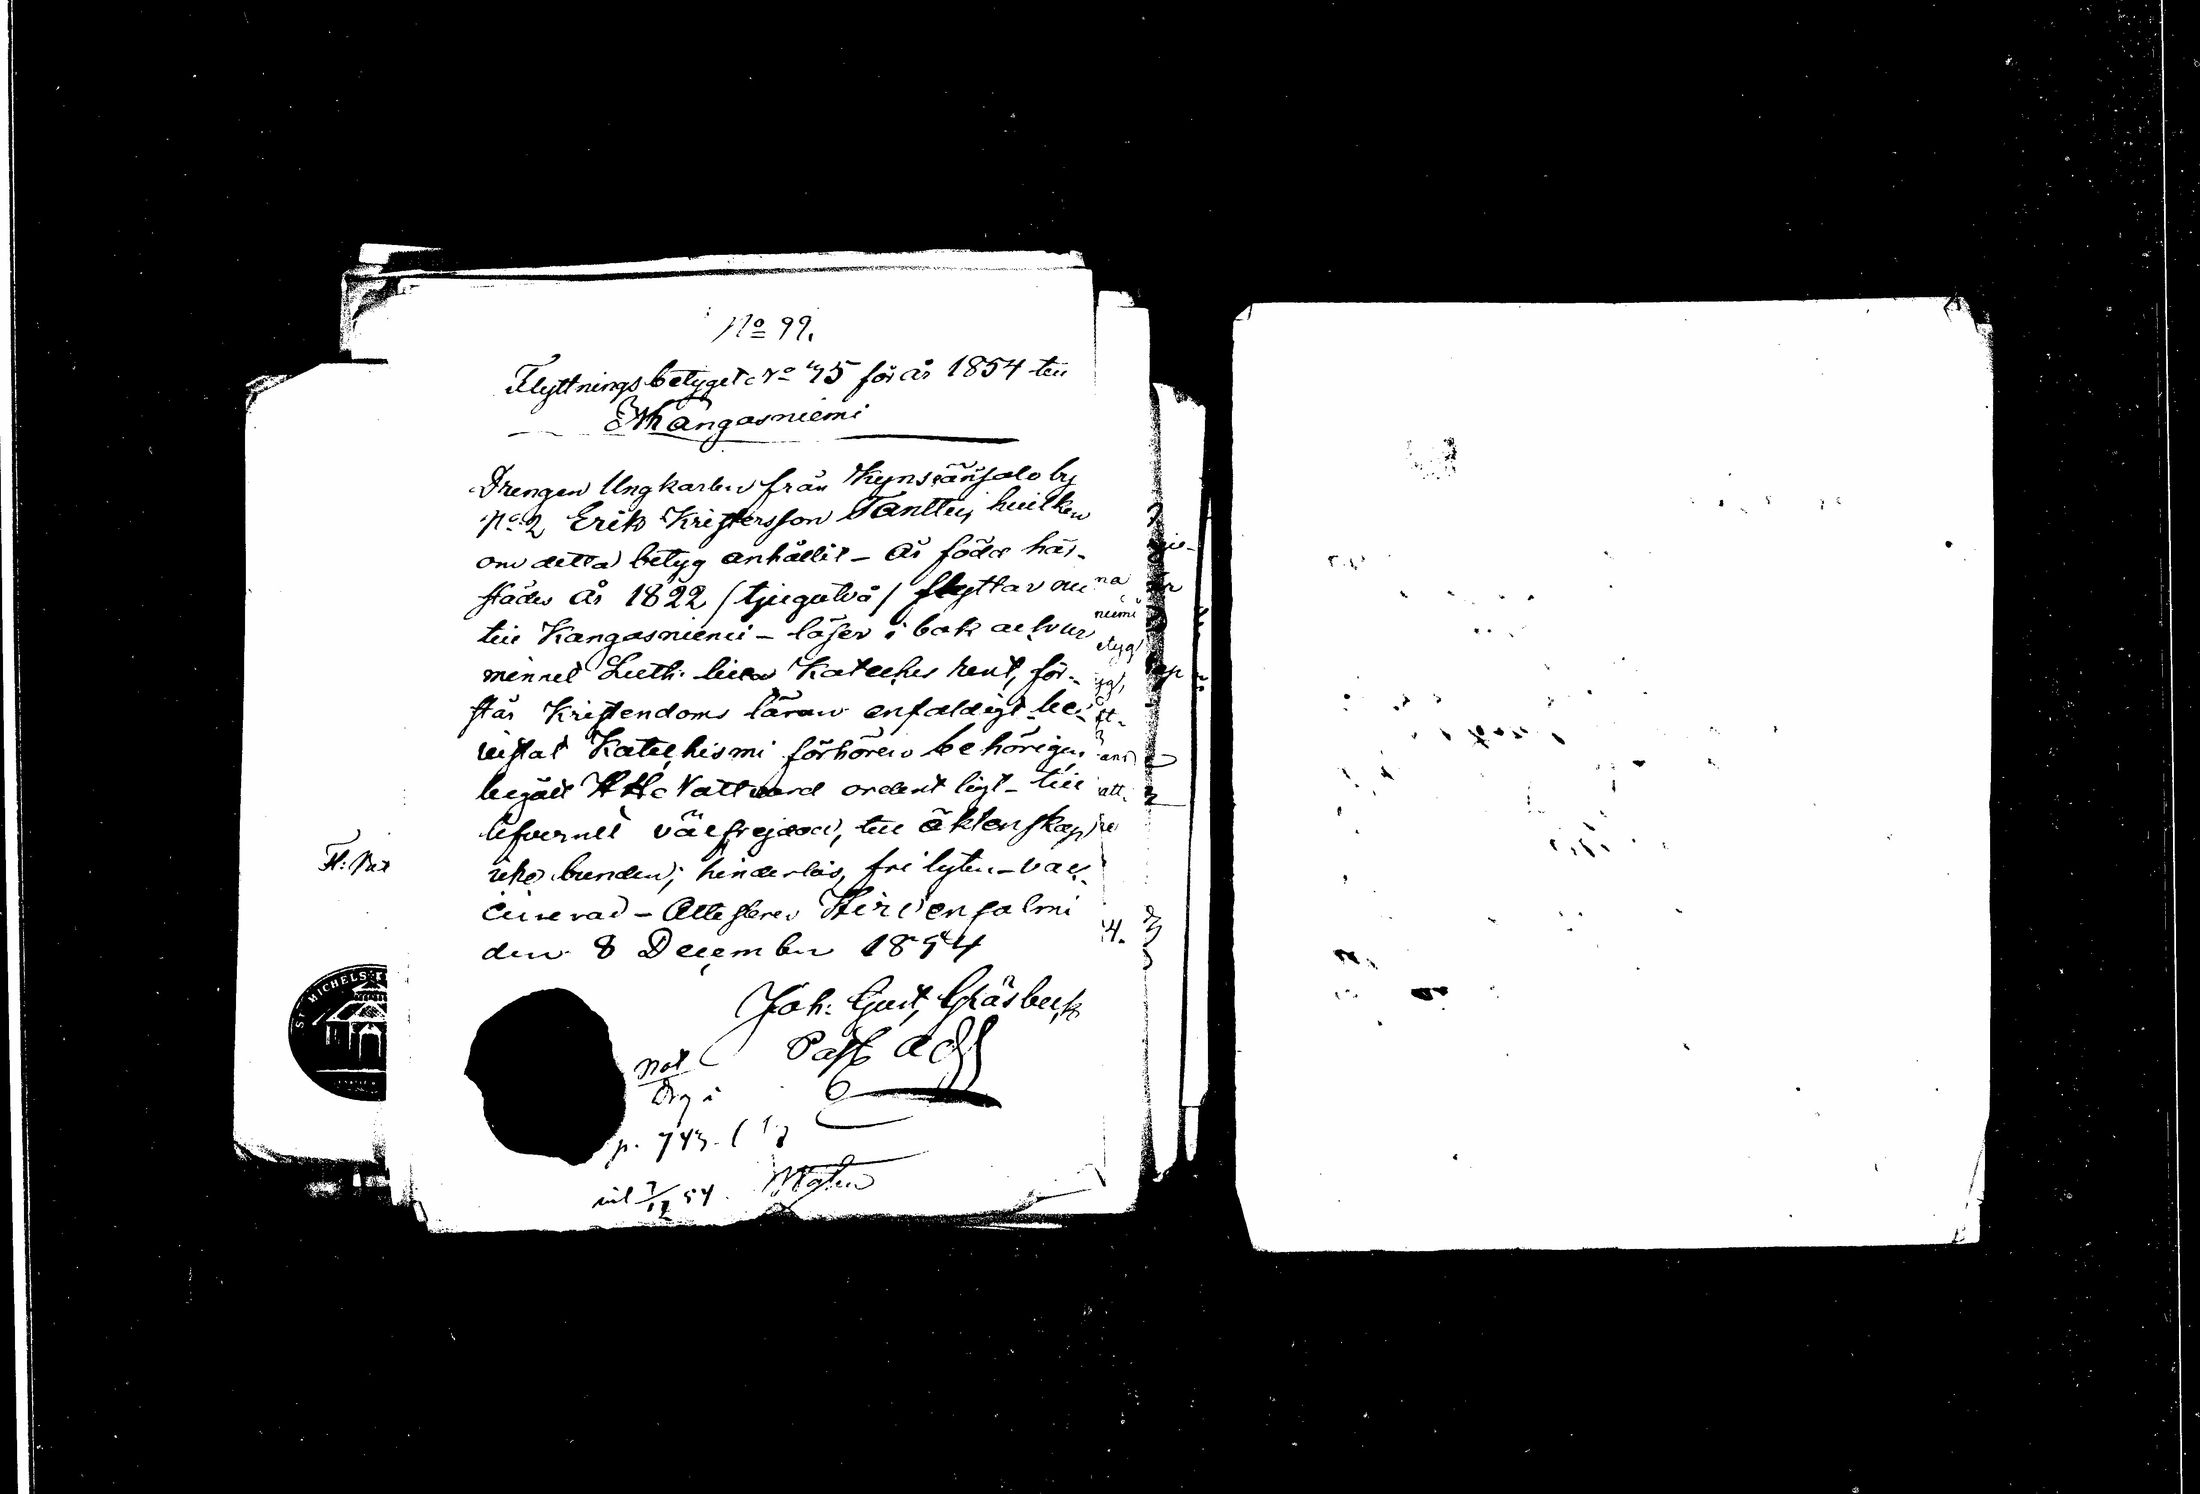 No 99.
Flyttningsbetyget No 45 för år 1854 till
Kangasniemi
Drengen Ungkarlen från Kynsiänsalo by
No 2 Erik Kristersson Tanttu, hvilken
om detta betyg anhållit - är född här-
städes år 1822 /tjugutvå/ flyttar nu
till Kangasniemi - läser i bok och ur
minnet Luth: lilla Kateches rent, för-
står Kristendoms läran enfaldigt - be-
vistat Katechismi förhören behörigen
begått HHs Nattvard ordentligt - till
lefvernet välfrejdad, till äktenskap
icke bunden; hinderlös, fri lyten - vac-
cinerad - Attesterar Hirvensalmi
den 8 December 1854
Joh: Gust, Gråsbeck
Past adj
Not
p. 743.
54
na
niemi
etyg
4.
Fl:
ST MICHELS